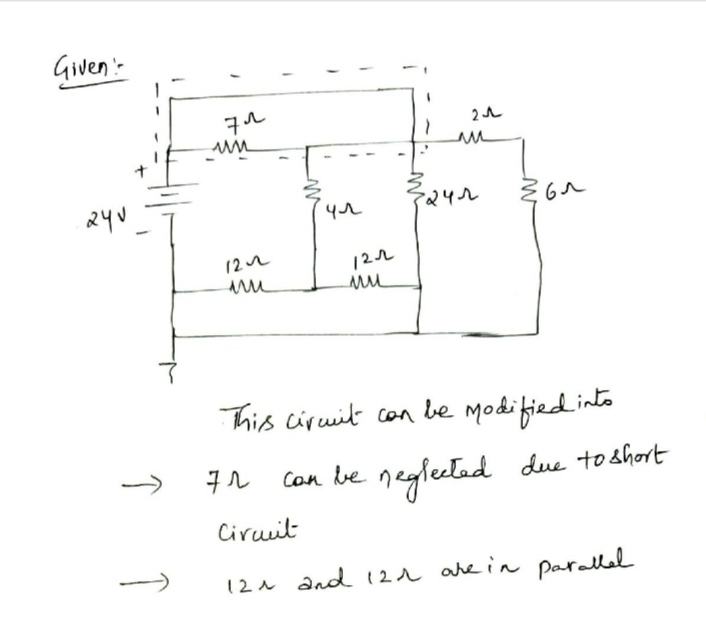 Given:-
7Ω
2Ω
+
24V
-
4Ω
24Ω
6Ω
12Ω
12Ω
This circuit can be modified into
→ 7Ω can be neglected due to short
circuit
→ 12Ω and 12Ω are in parallel